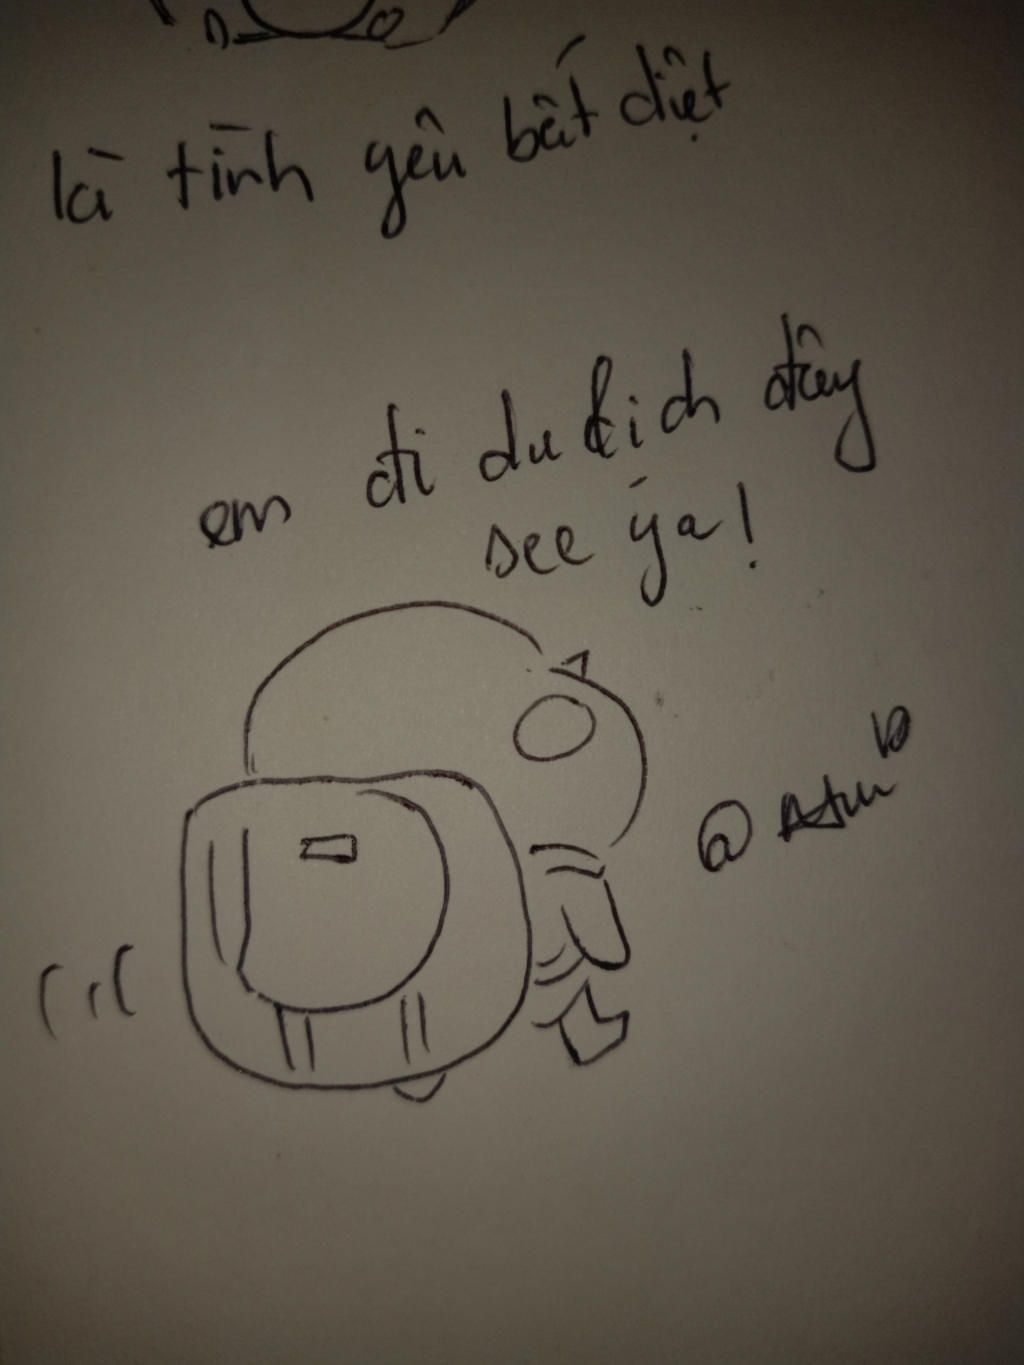 là tình yêu bất diệt
em đi du lịch đây
see ya!